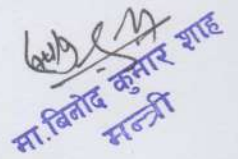 मा. बिनोद कुमार शाह
मन्त्री